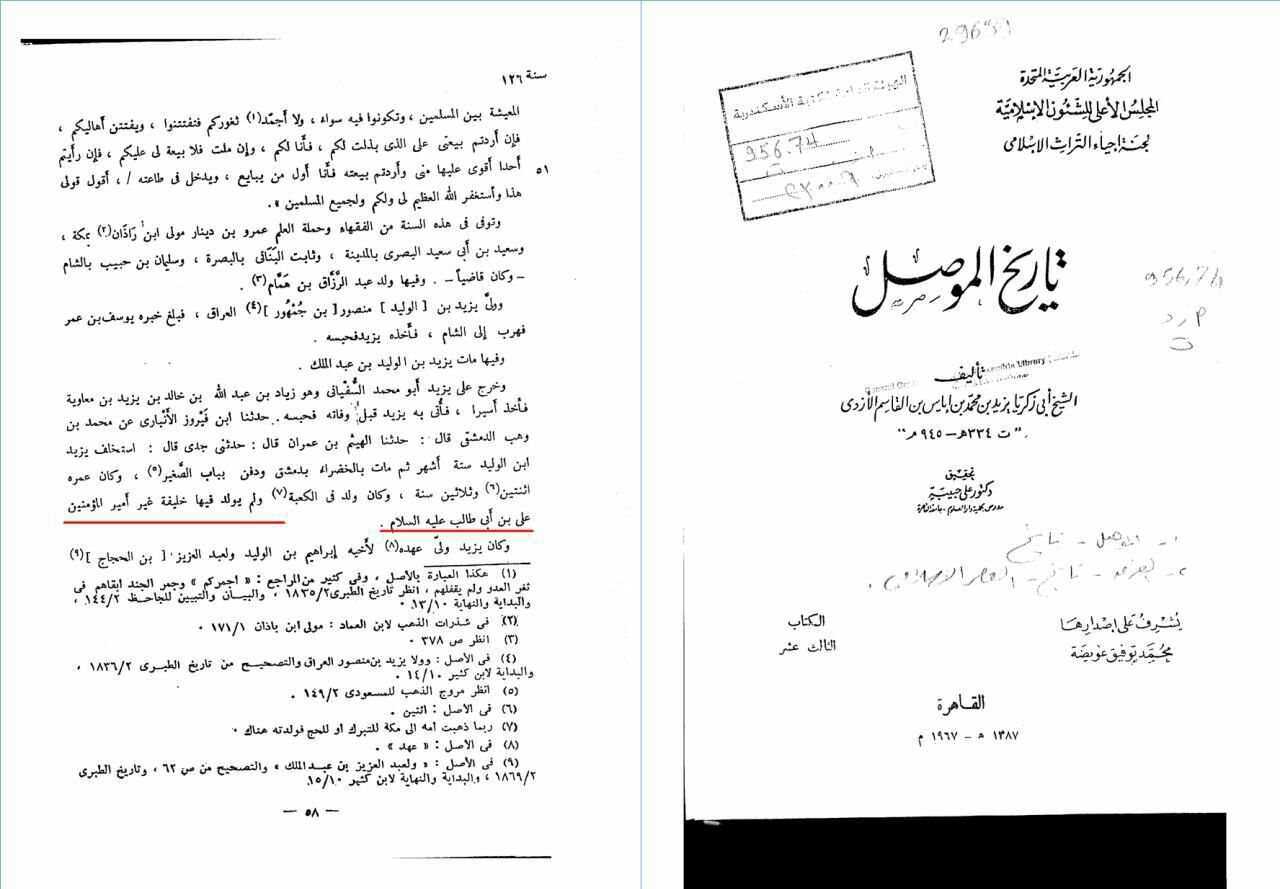 سنة ١٢٦
المعيشة بين المسلمين ، وتكونوا فيه سواء ، ولا أجمّد(١) ثغوركم فتفتتنوا ، ويفتتن أهاليكم ،
فإن أردتم بيعتى على الذى بذلت لكم ، فأنا لكم ، وإن ملت فلا بيعة لى عليكم ، فإن رأيتم
أحدا أقوى عليها منى وأردتم بيعته فأنا أول من يبايع ، ويدخل فى طاعته / ، أقول قولى
٥١
هذا وأستغفر الله العظيم لى ولكم ولجميع المسلمين » .
وتوفى فى هذه السنة من الفقهاء وحملة العلم عمرو بن دينار مولى ابن رَاذَان(٢) بمكة ،
وسعيد بن أبى سعيد البصرى بالمدينة ، وثابت البَنَانى بالبصرة ، وسليمان بن حبيب بالشام
– وكان قاضياً – . وفيها ولد عبد الرَّزَّاق بن هَمَّام(٣) .
وولىَّ يزيد بن [ الوليد ] منصور [ بن جُمْهُور ](٤) العراق ، فبلغ خبره يوسف بن عمر
فهرب إلى الشام ، فأخذه يزيد فحبسه .
وفيها مات يزيد بن الوليد بن عبد الملك .
وخرج على يزيد أبو محمد السُّفْيانى وهو زياد بن عبد الله بن خالد بن يزيد بن معاوية
فأخذ أسيرا ، فأتى به يزيد قبل وفاته فحبسه . حدثنا ابن فَيْروز الأنْبارى عن محمد بن
وهب الدمشقى قال : حدثنا الهيثم بن عمران قال : حدثنى جدى قال : استخلف يزيد
ابن الوليد ستة أشهر ثم مات بالخضراء بدمشق ودفن بباب الصَّغير(٥) ، وكان عمره
اثنتين(٦) وثلاثين سنة ، وكان ولد فى الكعبة(٧) ولم يولد فيها خليفة غير أمير المؤمنين
على بن أبى طالب عليه السلام .
وكان يزيد ولىّ عهده(٨) لأخيه إبراهيم بن الوليد ولعبد العزيز [ بن الحجاج ](٩)
(١) هكذا العبارة بالأصل ، وفى كثير من المراجع : « اجمركم » وجمر الجند ابقاهم فى
ثغر العدو ولم يقفلهم ، انظر تاريخ الطبرى ١٨٣٥/٢ ، والبيان والتبين للجاحظ ١٤٤/٢ ،
والبداية والنهاية ١٣/١٠ .
(٢) فى شذرات الذهب لابن العماد : مولى ابن باذان ١٧١/١ .
(٣) انظر ص ٣٧٨ .
(٤) فى الأصل : وولا يزيد بن منصور العراق والتصحيح من تاريخ الطبرى ١٨٣٦/٢ ،
والبداية لابن كثير ١٤/١٠ .
(٥) انظر مروج الذهب للمسعودى ١٤٩/٢ .
(٦) فى الأصل : اثنين .
(٧) ربما ذهبت أمه الى مكة للتبرك أو للحج فولدته هناك .
(٨) فى الأصل : « عهد » .
(٩) فى الأصل : « ولعبد العزيز بن عبد الملك » والتصحيح من ص ٦٢ ، وتاريخ الطبرى
١٨٦٩/٢ ، والبداية والنهاية لابن كثير ١٥/١٠.
— ٥٨ —
الجمهورية العربية المتحدة
المجلس الأعلى للشئون الإسلامية
لجنة إحياء التراث الإسلامى
956.74
تاريخ الموصل
956.74
تأليف
الشيخ أبى زكريا يزيد بن محمد بن إياس بن القاسم الأزدى
" ت ٣٣٤ هـ – ٩٤٥ م "
تحقيق
دكتور على حبيبة
مدرس بكلية دار العلوم – جامعة القاهرة
١- الموصل - تاريخ
يشرف على إصدارها
محمد توفيق عويضة
الكتاب
الثالث عشر
القاهرة
١٣٨٧ هـ – ١٩٦٧ م